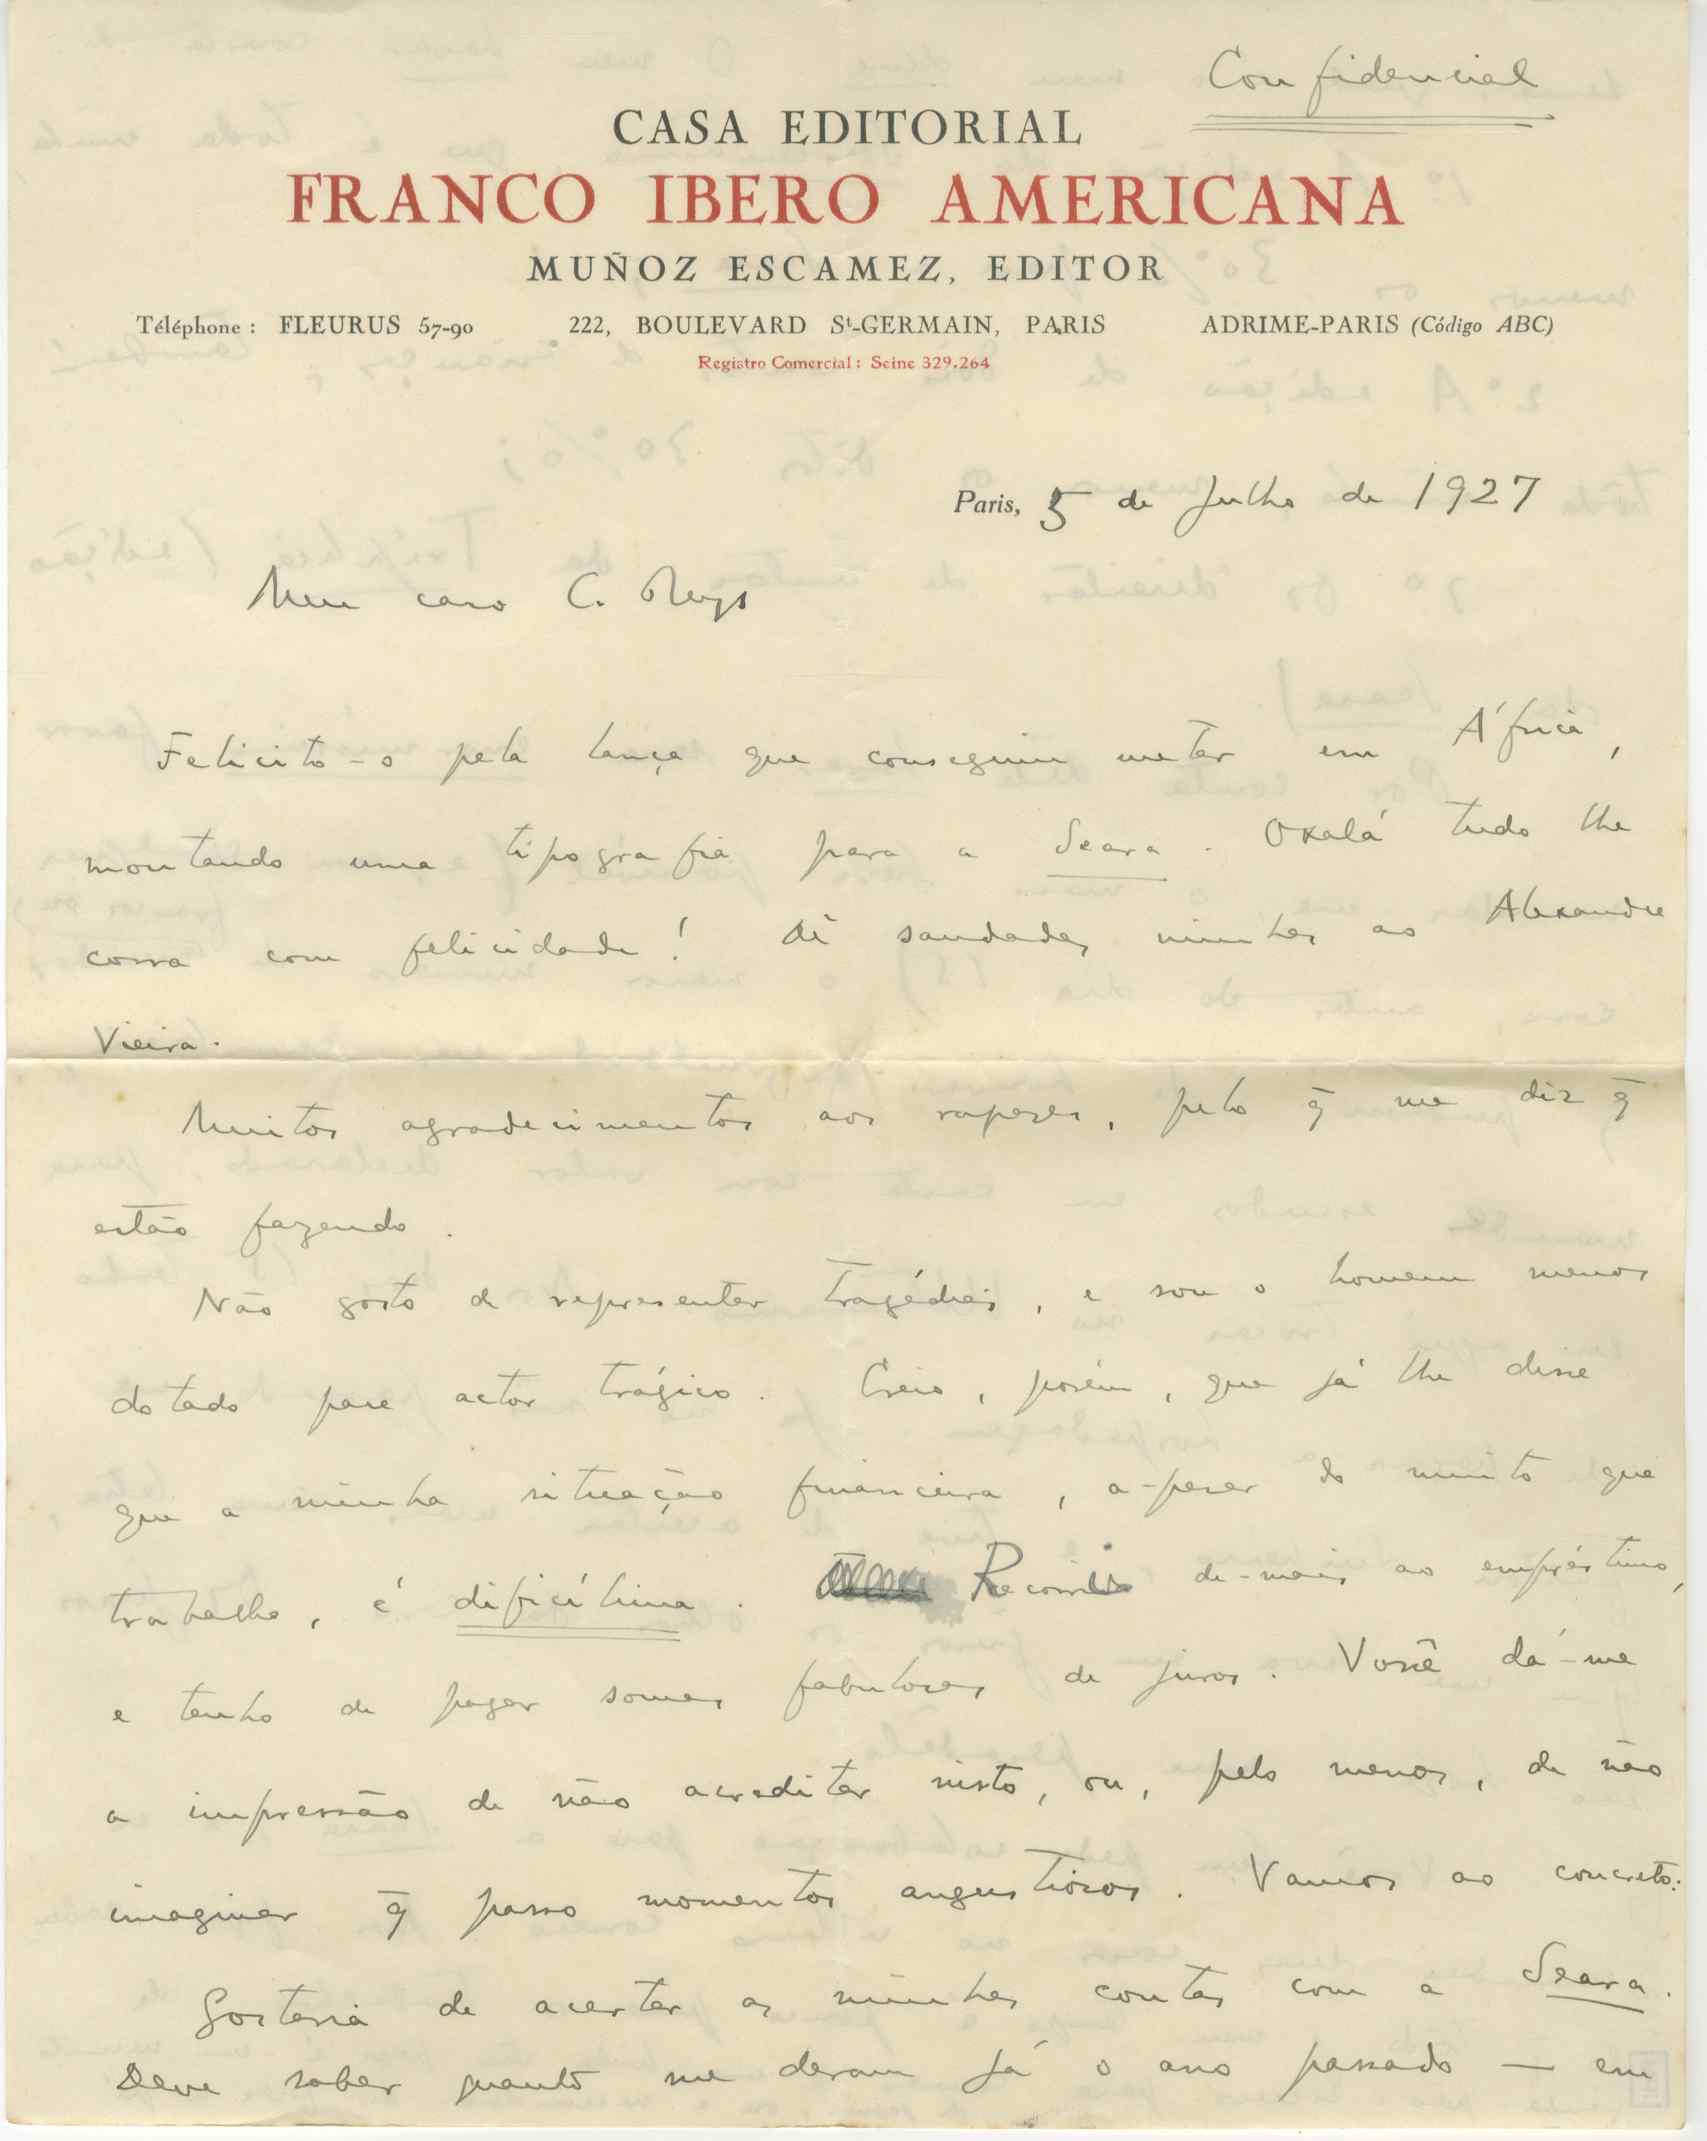 Confidencial
CASA EDITORIAL
FRANCO IBERO AMERICANA
MUÑOZ ESCAMEZ, EDITOR
Téléphone : FLEURUS 57-90 222, BOULEVARD St-GERMAIN, PARIS ADRIME-PARIS (Código ABC)
Registro Comercial : Seine 329.264
Paris, 5 de Julho de 1927
Meu caro C. Reys
Felicito-o pela lança que conseguiu meter em África,
montando uma tipografia para a Seara. Oxalá tudo lhe
corra com felicidade! Dê saudades minhas ao Alexandre
Vieira.
Muitos agradecimentos aos rapazes, pelo q̃ me diz q̃
estão fazendo.
Não gosto de representar tragédias, e sou o homem menos
dotado para actor trágico. Creio, porém, que já lhe disse
que a minha situação financeira, a-pesar do muito que
trabalho, é dificílima. Recorri de-mais ao empréstimo,
e tenho de pagar somas fabulosas de juros. Você dá-me
a impressão de não acreditar nisto, ou, pelo menos, de não
imaginar q̃ passo momentos angustiosos. Vamos ao concreto:
Gostaria de acertar as minhas contas com a Seara.
Deve saber quanto me deram já o ano passado — em